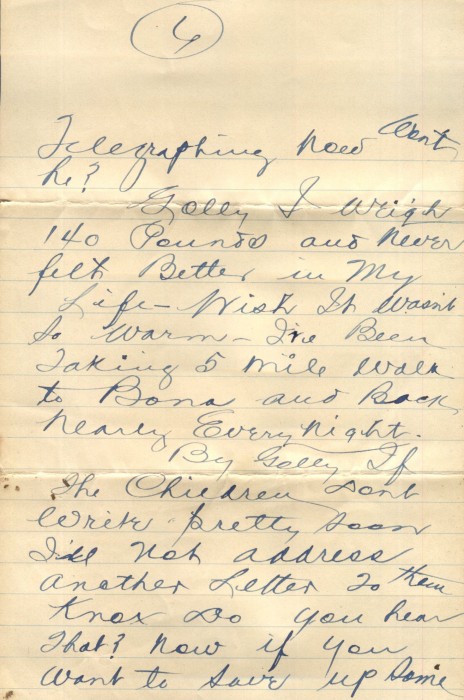 6
Telegraphing now Wont
he?
Golly I Weigh
140 Pounds and Never
felt Better in My
Life - Wish It Wasn't
So Warm - I've Been
Taking 5 Mile Walk
to Bona and Back
Nearly Every Night.
By Golly If
The Children Dont
Write pretty soon
I'll Not address
Another Letter To them
Knox Do you hear
That? Now if you
Want to Save up Some